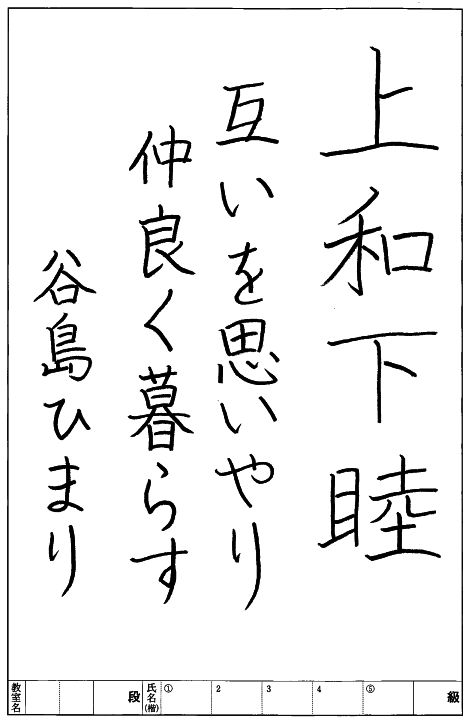 上和下睦
互いを思いやり
仲良く暮らす
谷島ひまり
教室名
段
氏名(楷)
① 2 3 4 ⑤
級